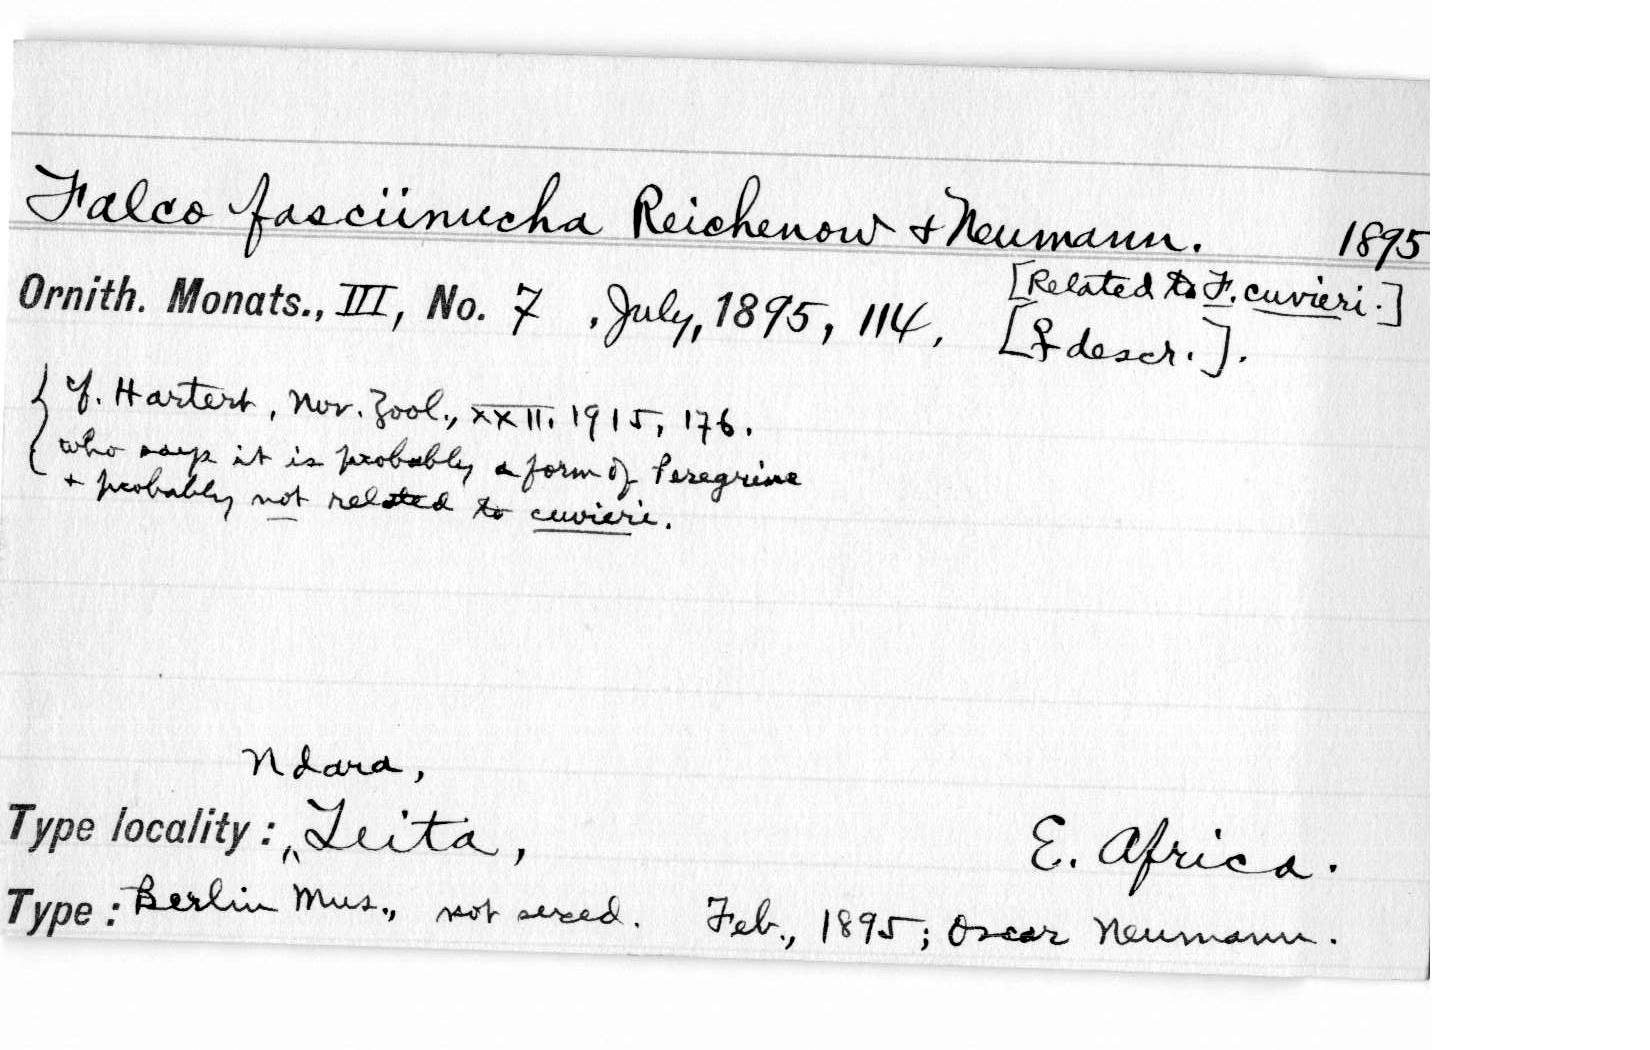 Falco fasciinucha Reichenow & Neumann. 1895
Ornith. Monats., III, No. 7, July, 1895, 114,
[Related to F. cuvieri.]
[♀ descr.].
cf. Hartert, Nov. Zool., XXII. 1915, 176.
who says it is probably a form of Peregrine
+ probably not related to cuvieri.
Ndara,
Type locality: Teita, E. Africa.
Type: Berlin Mus., not sexed. Feb., 1895; Oscar Neumann.